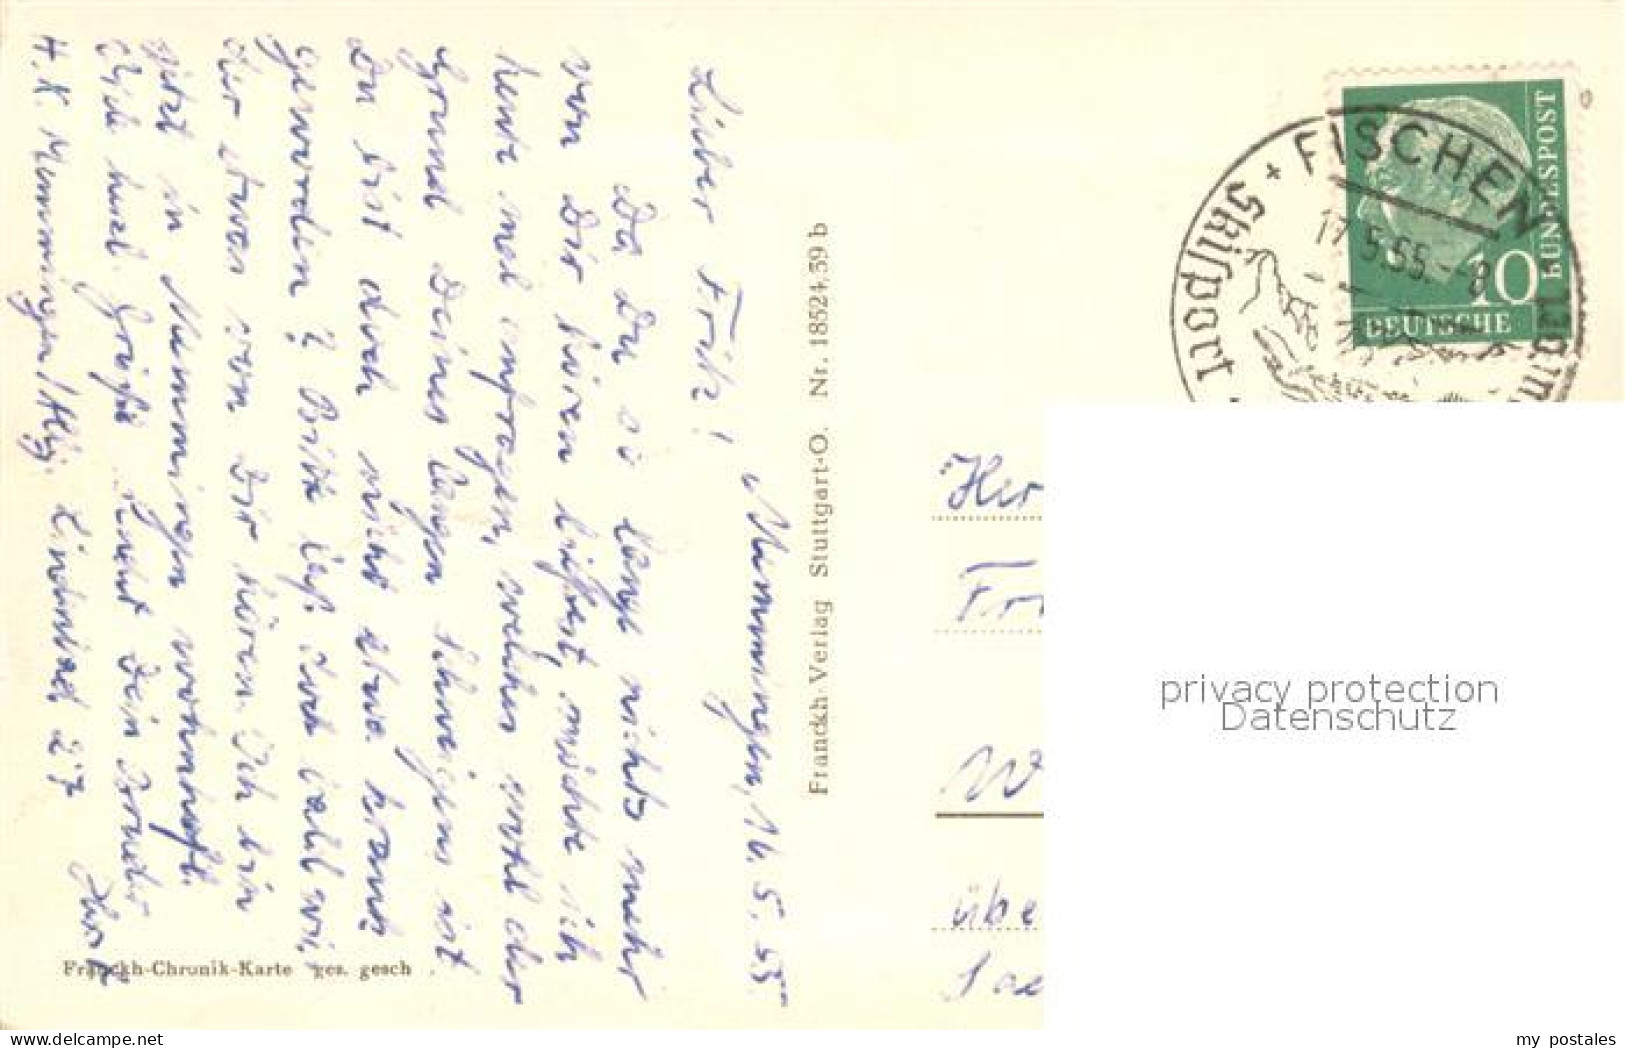 Memmingen, 16. 5. 55
Lieber Fritz!
Da Du so lange nichts mehr
von Dir hören liessest, möchte ich
heute mal anfragen, welches wohl der
Grund Deines langen Schweigens ist
Du bist doch nicht etwa krank
geworden? Bitte lass doch bald wie-
der etwas von Dir hören. Ich bin
jetzt in Memmingen wohnhaft.
herzl. Grüsse Dein Bruder
Memmingen/Allg. Lindenbad
Franckh-Chronik-Karte ges. gesch
Franckh-Verlag Stuttgart-O. Nr. 18524.39 b
FISCHEN
17.5.55.--8
Skisport
DEUTSCHE
BUNDESPOST
10
Her
Fri
W
übe
privacy protection
Datenschutz
my postales